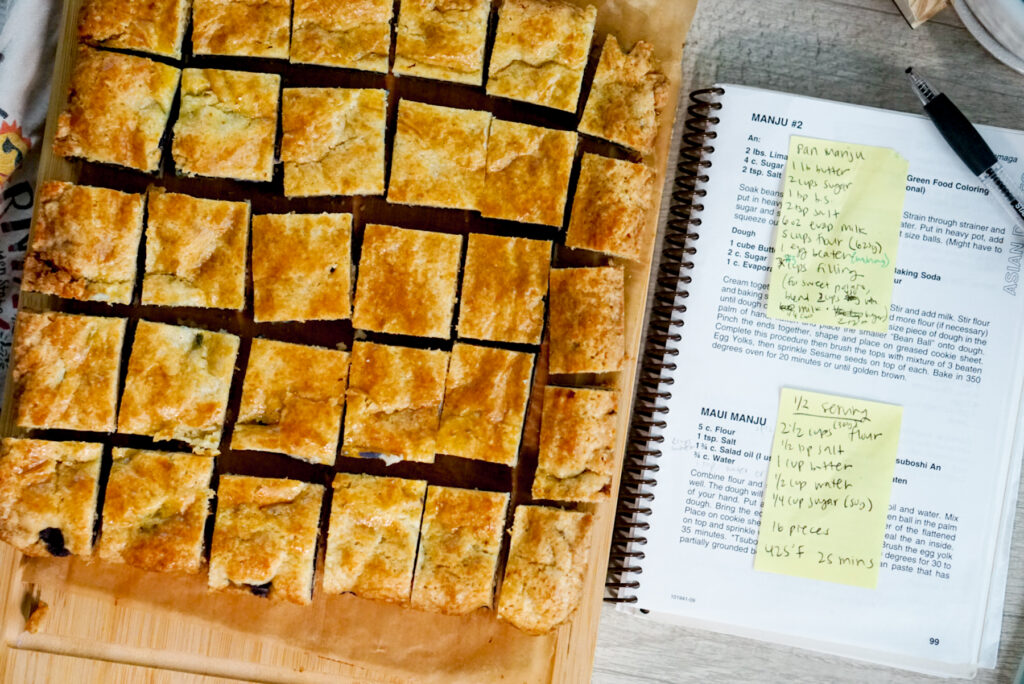 MANJU #2
An:
2 lbs. Lima
4 c. Sugar
2 tsp. Salt
Green Food Coloring
Soak beans
put in heavy
sugar and
squeeze ou
Strain through strainer and
water. Put in heavy pot, add
size balls. (Might have to
Pan Manju
1 lb butter
2 cups sugar
2 tsp salt
6 oz evap milk
5 cups flour (625g)
1 egg beaten
cups filling
(for sweet potato,
blend 2 cups
milk
Dough
1 cube Butt
2 c. Sugar
1 c. Evapor
aking Soda
Cream togeth
and baking s
until dough c
palm of hand, and place the smaller "Bean Ball" onto dough.
Stir and add milk. Stir flour
d more flour (if necessary)
size piece of dough in the
Pinch the ends together, shape and place on greased cookie sheet.
Complete this procedure then brush the tops with mixture of 3 beaten
Egg Yolks, then sprinkle Sesame seeds on top of each. Bake in 350
degrees oven for 20 minutes or until golden brown.
MAUI MANJU
5 c. Flour
1 tsp. Salt
1¾ c. Salad oil (I u
¾ c. Water
suboshi An
Combine flour and
well. The dough will
of your hand. Put a
dough. Bring the ed
Place on cookie she
on top and sprinkle
35 minutes. "Tsubo
partially grounded b
oil and water. Mix
en ball in the palm
er of the flattened
eal the an inside.
Brush the egg yolk
degrees for 30 to
an paste that has
1/2 serving
2 1/2 cups flour
1/2 tsp salt
1 cup butter
1/2 cup water
1/4 cup sugar (50g)
16 pieces
425°F 25 mins
101941-06
99
ASIAN